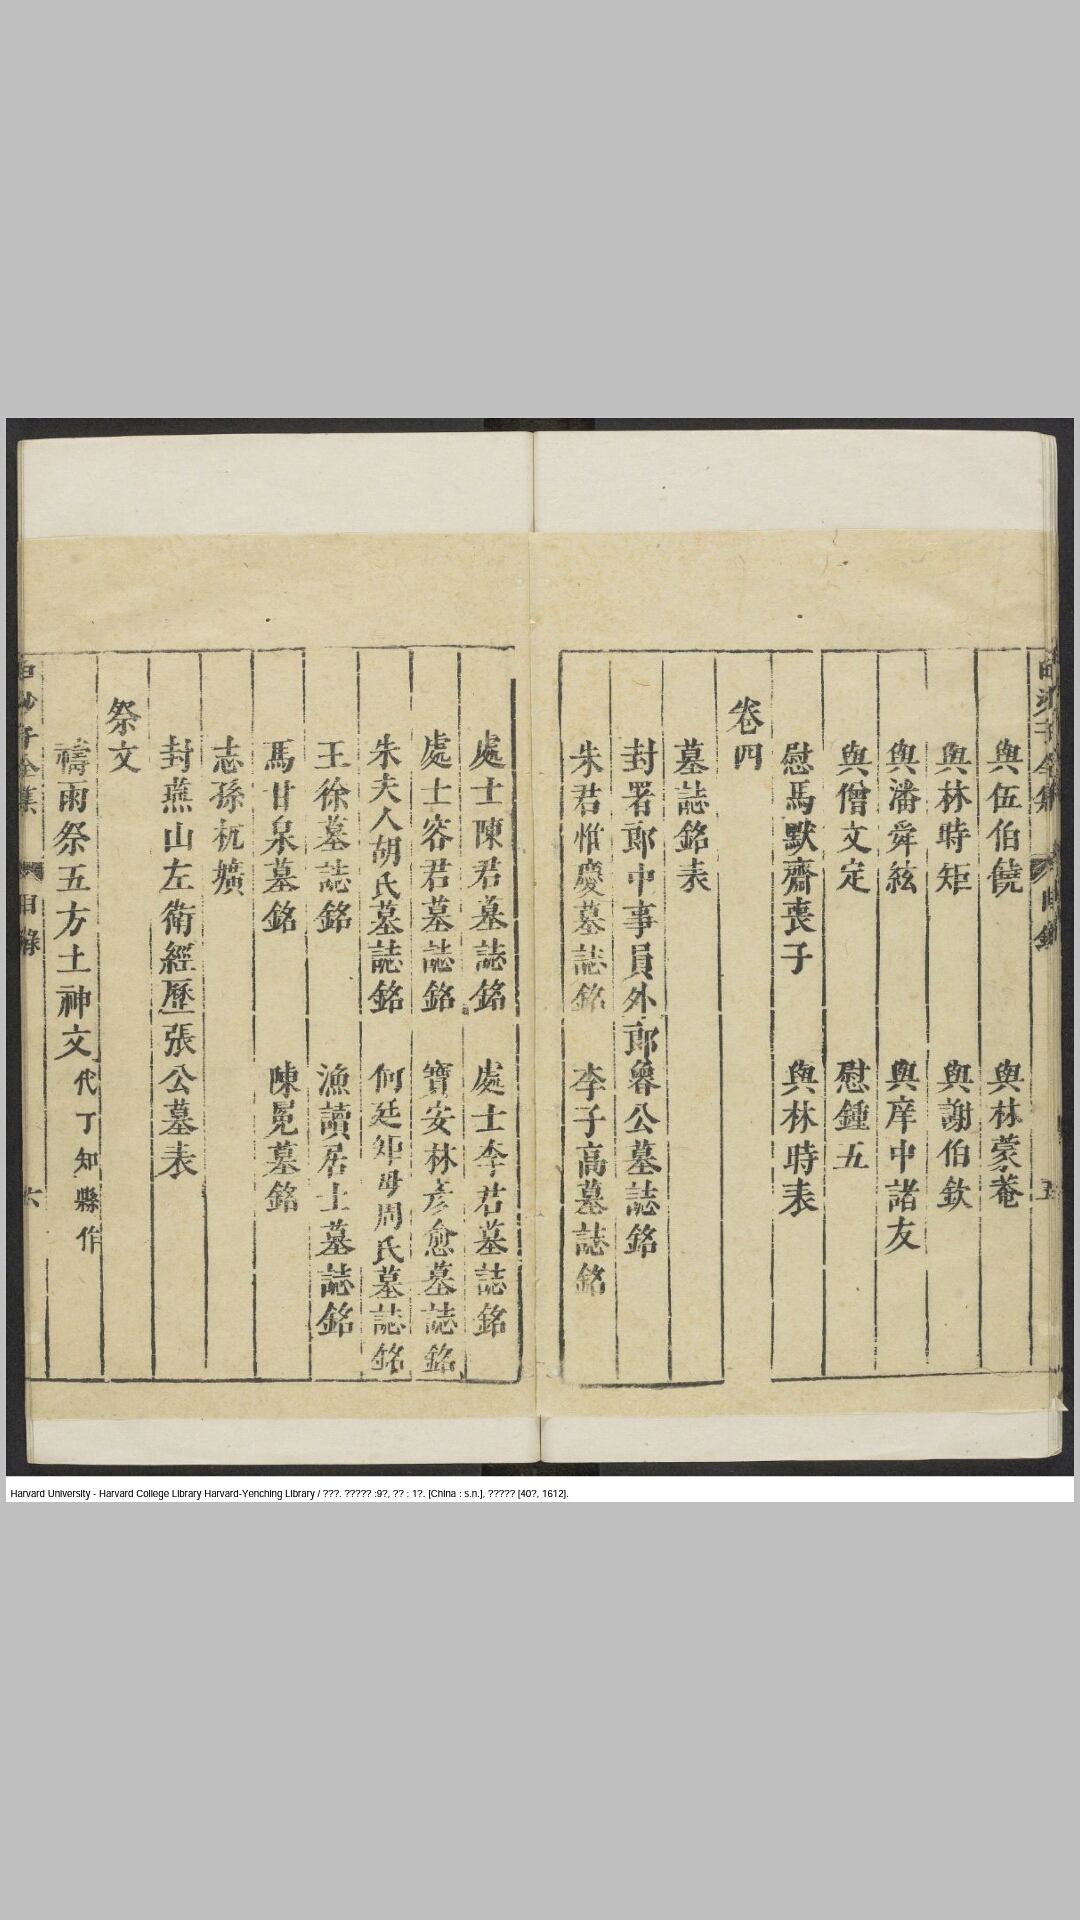 白沙子全集 目錄 五
與伍伯饒 與林蒙菴
與林時矩 與謝伯欽
與潘舜絃 與庠中諸友
與僧文定 慰鍾五
慰馬默齋喪子 與林時表
卷四
墓誌銘表
封署郎中事員外郎 公墓誌銘
朱君惟慶墓誌銘 李子高墓誌銘
處士陳君墓誌銘 處士李君墓誌銘
處士容君墓誌銘 寶安林彥愈墓誌銘
朱夫人胡氏墓誌銘 何廷矩母周氏墓誌銘
王徐墓誌銘 漁讀居士墓誌銘
馬甘泉墓銘 陳冕墓銘
志孫杭壙
封燕山左衛經歷張公墓表
祭文
禱雨祭五方土神文代丁知縣作
白沙子全集 目錄 六
Harvard University - Harvard College Library Harvard-Yenching Library / ???. ????? :9?, ?? : 1?. [China : s.n.], ????? [40?, 1612].